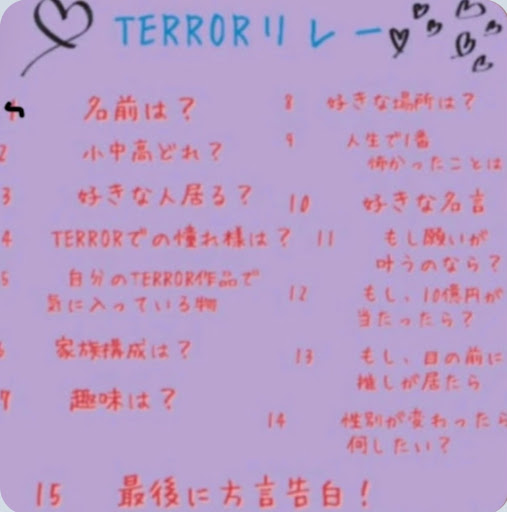 TERRORリレー
1 名前は？
2 小中高どれ？
3 好きな人居る？
4 TERRORでの憧れ様は？
5 自分のTERROR作品で
気に入っている物
6 家族構成は？
7 趣味は？
8 好きな場所は？
9 人生で1番
怖かったことは
10 好きな名言
11 もし願いが
叶うのなら？
12 もし、10億円が
当たったら？
13 もし、目の前に
推しが居たら
14 性別が変わったら
何したい？
15 最後に方言告白！